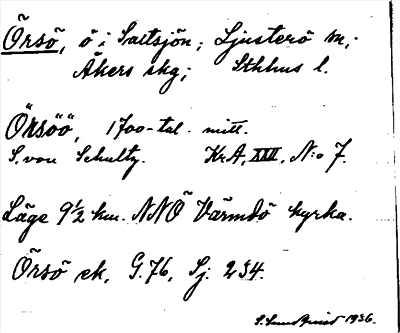 Örsö, ö i Saltsjön; Ljusterö sn;
Åkers skg; Sthlms l.
Örsöö, 1700-tal. mitt.
S. von Schultz. KrA, XXV, N:o 7.
Läge 9½ km. NNÖ Värmdö kyrka.
Örsö ek, G. 76, Sj. 234.
1936.